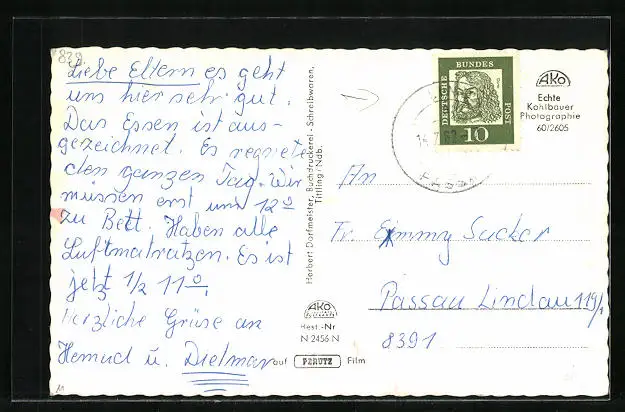 839
Liebe Eltern es geht
uns hier sehr gut.
Das Essen ist aus-
gezeichnet. Es regnete
den ganzen Tag. Wir
müssen erst um 12°
zu Bett. Haben alle
Luftmatratzen. Es ist
jetzt 1/2 11°.
Herzliche Grüse an
Hemud u. Dietmar
Herbert Dorfmeister, Buchdruckerei - Schreibwaren,
Tittling / Ndb.
AKO
Best.-Nr
N 2456 N
auf PERUTZ Film
DEUTSCHE BUNDES POST
10
PASSAU
AKO
Echte
Kohlbauer
Photographie
60/2605
An
Fr. Emmy Sucker
Passau Lindau 119/1
8391